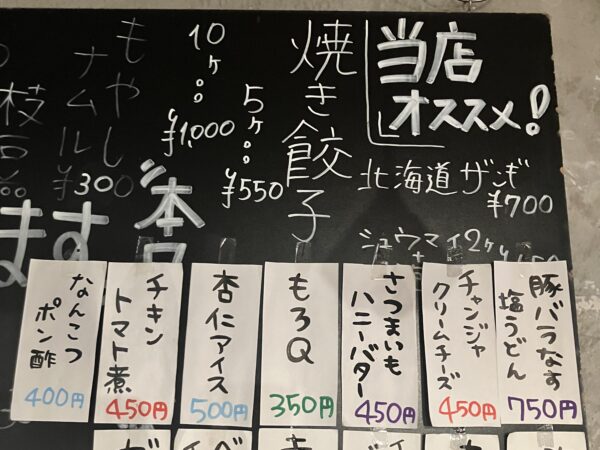 当店
オススメ!
北海道ザンギ
¥700
シュウマイ2ヶ
焼き餃子
5ヶ
¥550
10ヶ
¥1,000
もやし
ナムル
¥300
枝豆
ます
豚バラなす
塩うどん
750円
チャンジャ
クリームチーズ
450円
さつまいも
ハニーバター
450円
もろQ
350円
杏仁アイス
500円
チキン
トマト煮
450円
なんこつ
ポン酢
400円